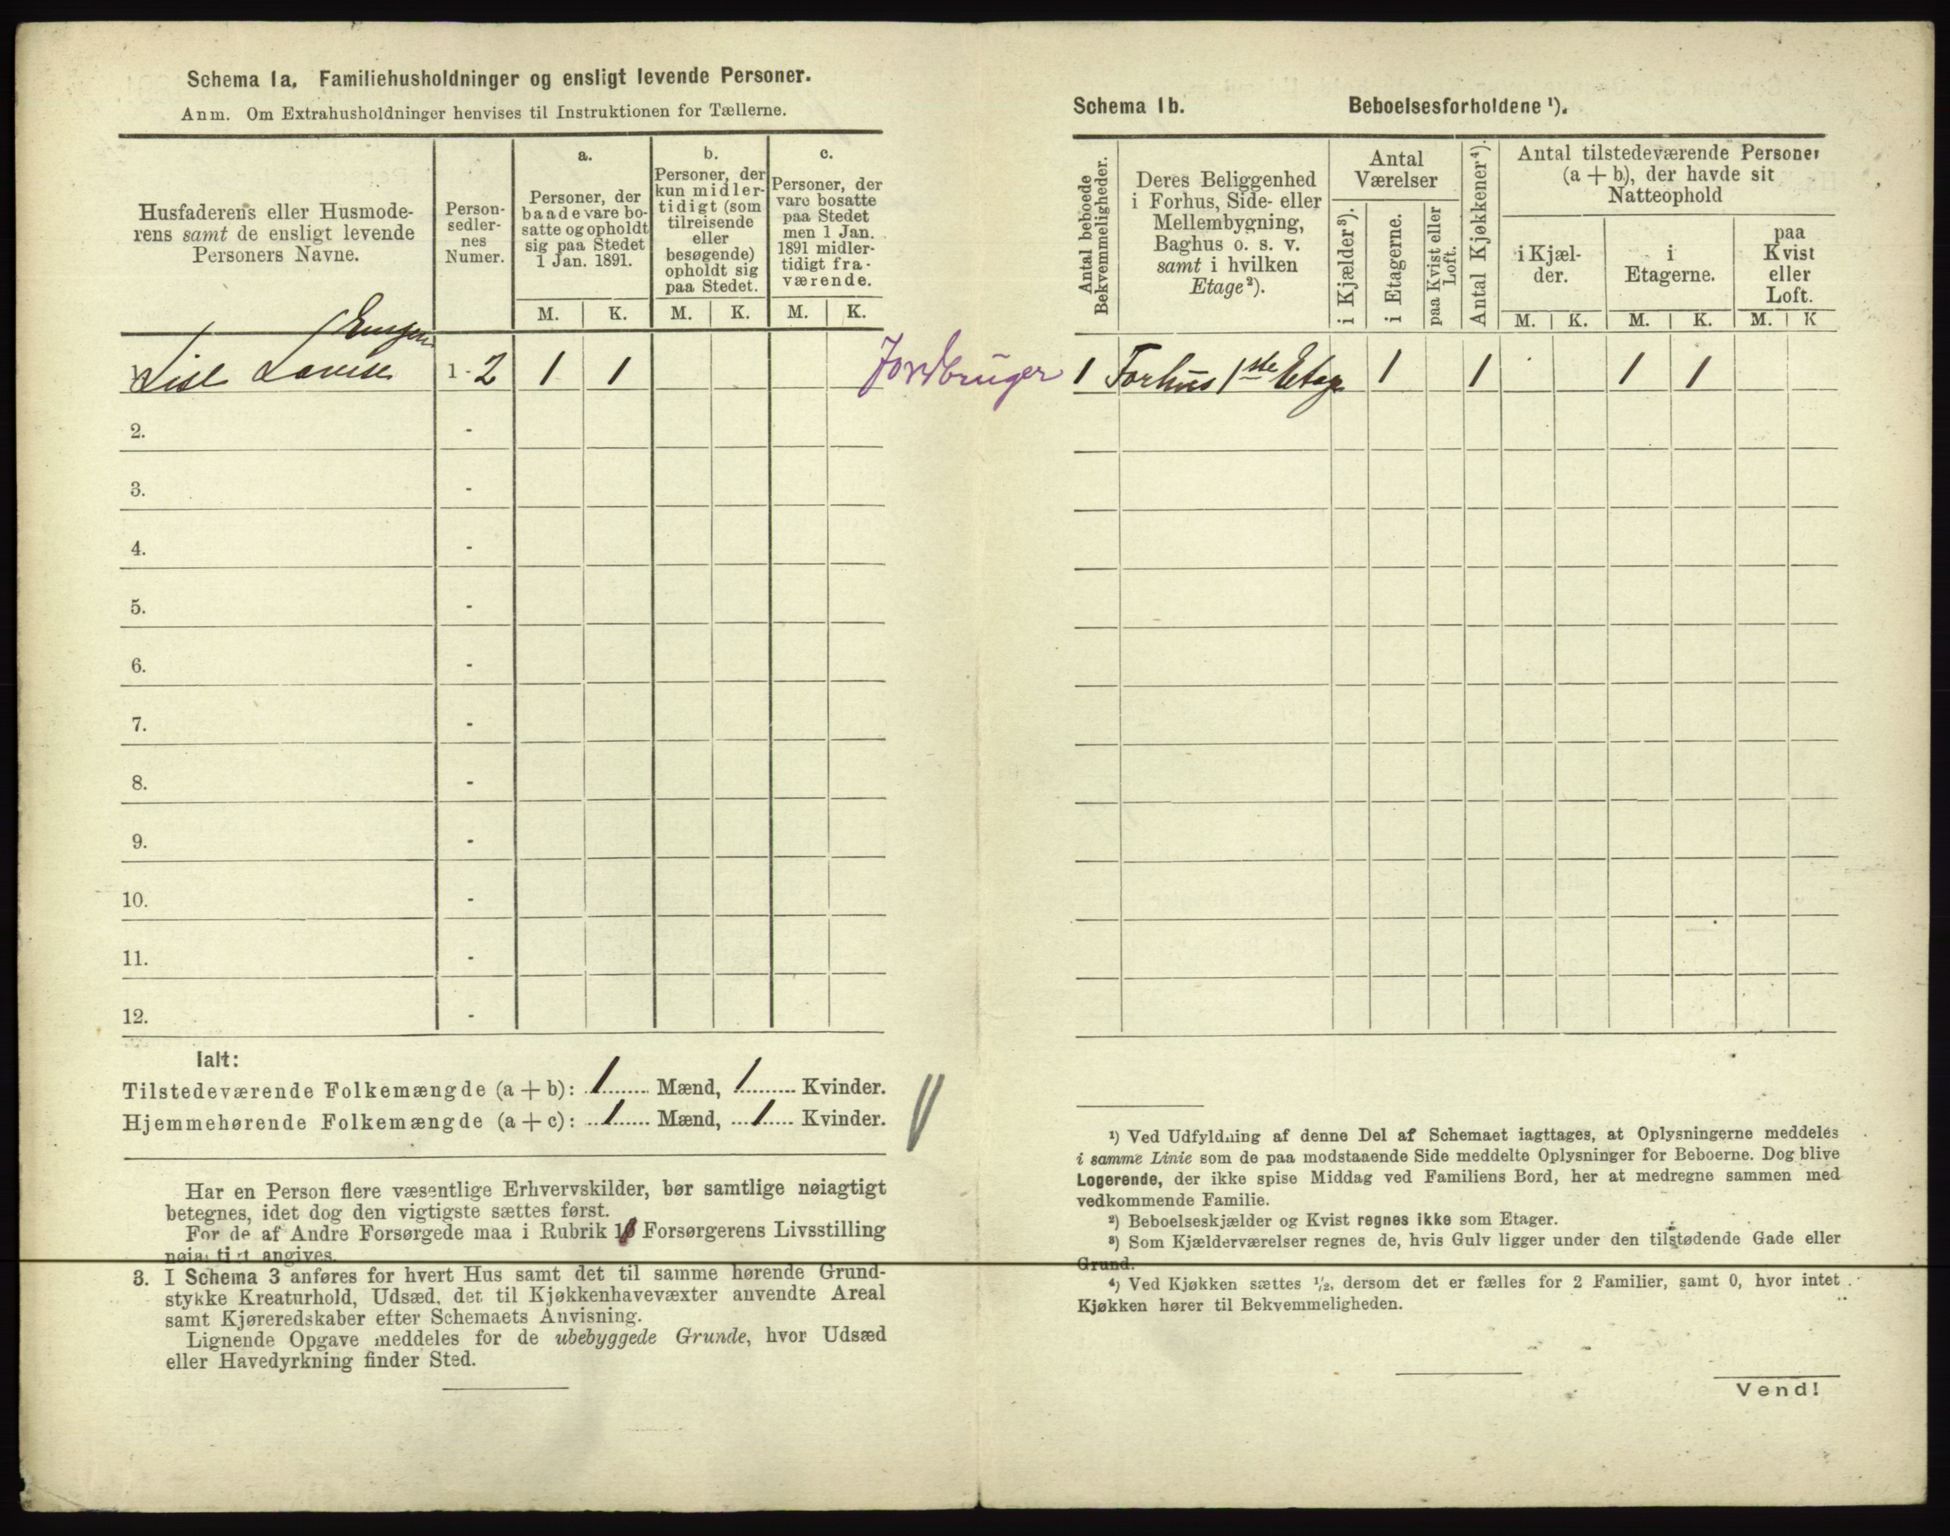 Schema 1a. Familiehusholdninger og ensligt levende Personer.
Anm. Om Extrahusholdninger henvises til Instruktionen for Tællerne.
Husfaderens eller Husmode-
rens samt de ensligt levende
Personers Navne.
Person-
sedler-
nes
Numer.
a.
Personer, der
baade vare bo-
satte og opholdt
sig paa Stedet
1 Jan. 1891.
b.
Personer, der
kun midler-
tidigt (som
tilreisende
eller
besøgende)
opholdt sig
paa Stedet.
c.
Personer, der
vare bosatte
paa Stedet
men 1 Jan.
1891 midler-
tidigt fra-
værende.
M. K. M. K. M. K.
Lise Lovise 1 - 2 1 1
Jordbruger
2. -
3. -
4. -
5. -
6. -
7. -
8. -
9. -
10. -
11. -
12. -
Ialt:
Tilstedeværende Folkemængde (a + b): 1 Mænd, 1 Kvinder.
Hjemmehørende Folkemængde (a + c): 1 Mænd, 1 Kvinder.
Har en Person flere væsentlige Erhvervskilder, bør samtlige nøiagtigt
betegnes, idet dog den vigtigste sættes først.
For de af Andre Forsørgede maa i Rubrik 10 Forsørgerens Livsstilling
nøiagtigt angives.
3. I Schema 3 anføres for hvert Hus samt det til samme hørende Grund-
stykke Kreaturhold, Udsæd, det til Kjøkkenhavevæxter anvendte Areal
samt Kjøreredskaber efter Schemaets Anvisning.
Lignende Opgave meddeles for de ubebyggede Grunde, hvor Udsæd
eller Havedyrkning finder Sted.
Schema 1b. Beboelsesforholdene ¹).
Antal beboede
Bekvemmeligheder.
Deres Beliggenhed
i Forhus, Side- eller
Mellembygning,
Baghus o. s. v.
samt i hvilken
Etage²).
Antal
Værelser
i Kjælder³).
i Etagerne.
paa Kvist eller
Loft.
Antal Kjøkkener⁴).
Antal tilstedeværende Personer
(a + b), der havde sit
Natteophold
i Kjæl-
der.
i
Etagerne.
paa
Kvist
eller
Loft.
M. K. M. K. M. K
1 Forhus 1ste Etage 1 1 1 1
¹) Ved Udfyldning af denne Del af Schemaet iagttages, at Oplysningerne meddeles
i samme Linie som de paa modstaaende Side meddelte Oplysninger for Beboerne. Dog blive
Logerende, der ikke spise Middag ved Familiens Bord, her at medregne sammen med
vedkommende Familie.
²) Beboelseskjælder og Kvist regnes ikke som Etager.
³) Som Kjælderværelser regnes de, hvis Gulv ligger under den tilstødende Gade eller
Grund.
⁴) Ved Kjøkken sættes ½, dersom det er fælles for 2 Familier, samt 0, hvor intet
Kjøkken hører til Bekvemmeligheden.
Vend!